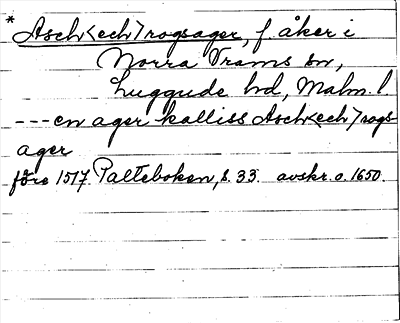 * Asch<ech>rogsager, f. åker i
Norra Vrams sn,
Luggude hd, Malm. l
---en ager kalliss Asch<ech>rogs-
ager
före 1517. Palteboken, s. 33. avskr. o. 1650.